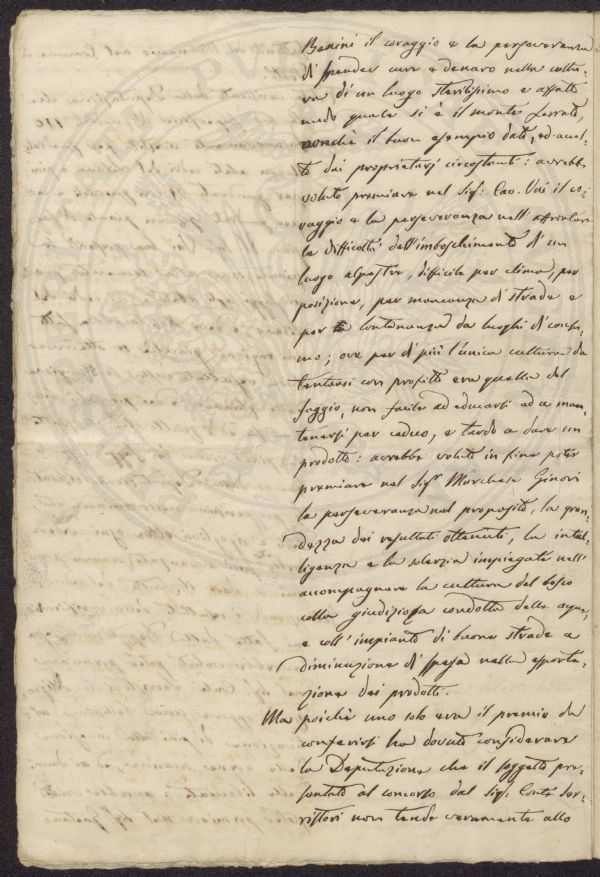 Benini il coraggio e la perseveranza
di spender cure e denaro nella coltu-
ra di un luogo sterilissimo e affatto
nudo quale si è il monte Ferrato,
nonchè il buon esempio dato, ed
dai proprietarj circostanti: avrebbe
voluto premiare nel Sig: Cav. Vai il co-
raggio e la perseveranza nell'affrontare
le difficoltà dell'imboschimento di un
luogo alpestre, difficile per clima, per
posizione, per mancanza di strade e
per lontananza da luoghi di consu-
mo; ove per di più l'unica cultura da
tentarsi con profitto era quella del
faggio, non facile ad educarsi ad a man-
tenersi per ceduo, e tardo a dare un
prodotto: avrebbe voluto in fine poter
premiare nel Sigr Marchese Ginori
la perseveranza nel proposito, la gran-
dezza dei resultati ottenuti, la intel-
ligenza e la solerzia impiegate nell'
accompagnare la cultura del bosco
colla giudiziosa condotta delle acque,
e coll'impianto di buone strade a
diminuzione di spesa nella esporta-
zione dei prodotti.
Ma poichè uno solo era il premio da
conferirsi ha dovuto considerare
la Deputazione che il soggetto pre-
sentato al concorso dal Sig: Conte Ser-
ristori non tende veramente allo